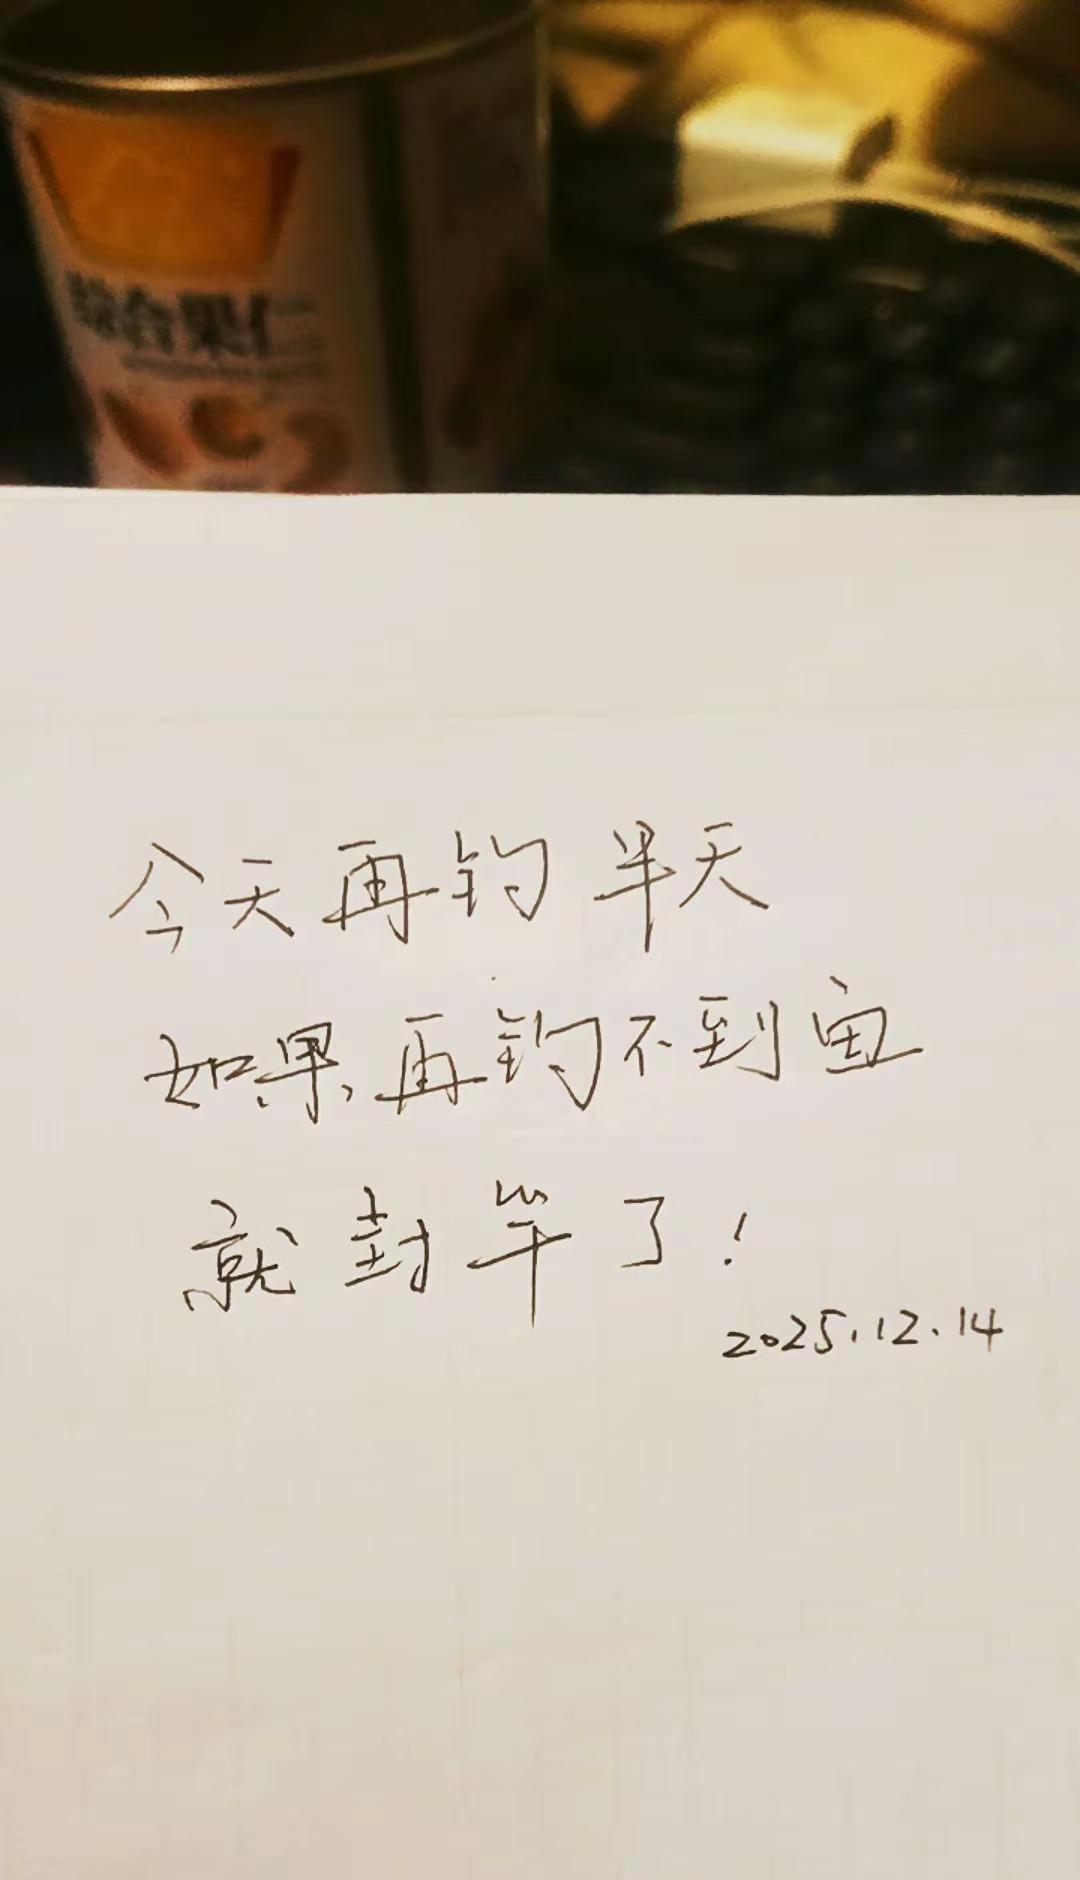 综合果仁
今天再钓半天
如果再钓不到鱼
就封竿了!
2025.12.14